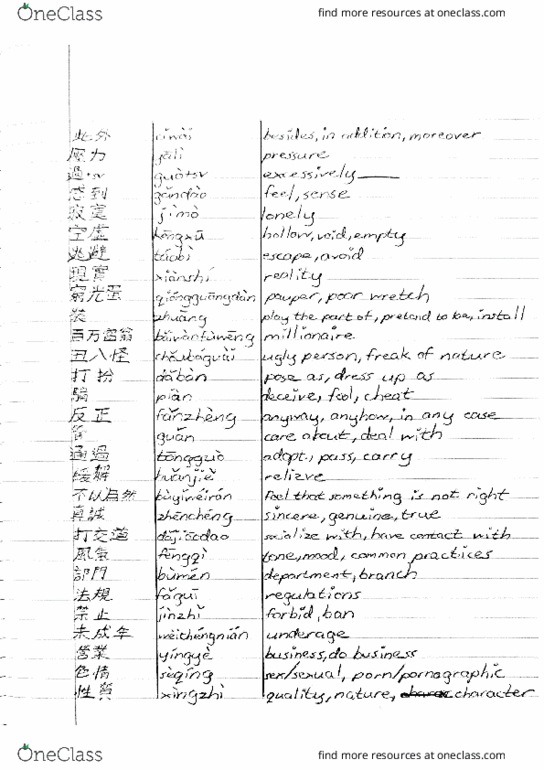 OneClass find more resources at oneclass.com
此外 cǐwài besides, in addition, moreover
壓力 yālì pressure
過 guò+sv excessively
感到 gǎndào feel, sense
寂寞 jìmò lonely
空虛 kōngxū hollow, void, empty
逃避 táobì escape, avoid
現實 xiànshí reality
窮光蛋 qióngguāngdàn pauper, poor wretch
裝 zhuāng play the part of, pretend to be, install
百万富翁 bǎiwànfùwēng millionaire
丑八怪 chǒubāguài ugly person, freak of nature
打扮 dǎbàn pose as, dress up as
騙 piàn deceive, fool, cheat
反正 fǎnzhèng anyway, anyhow, in any case
管 guǎn care about, deal with
通過 tōngguò adopt, pass, carry
緩解 huǎnjiě relieve
不以為然 bùyǐwéirán feel that something is not right
真誠 zhēnchéng sincere, genuine, true
打交道 dǎjiāodao socialize with, have contact with
風氣 fēngqì tone, mood, common practices
部門 bùmén department, branch
法規 fǎguī regulations
禁止 jìnzhǐ forbid, ban
未成年 wèichéngnián underage
營業 yíngyè business, do business
色情 sèqíng sex/sexual, porn/pornographic
性質 xìngzhì quality, nature, character
OneClass find more resources at oneclass.com